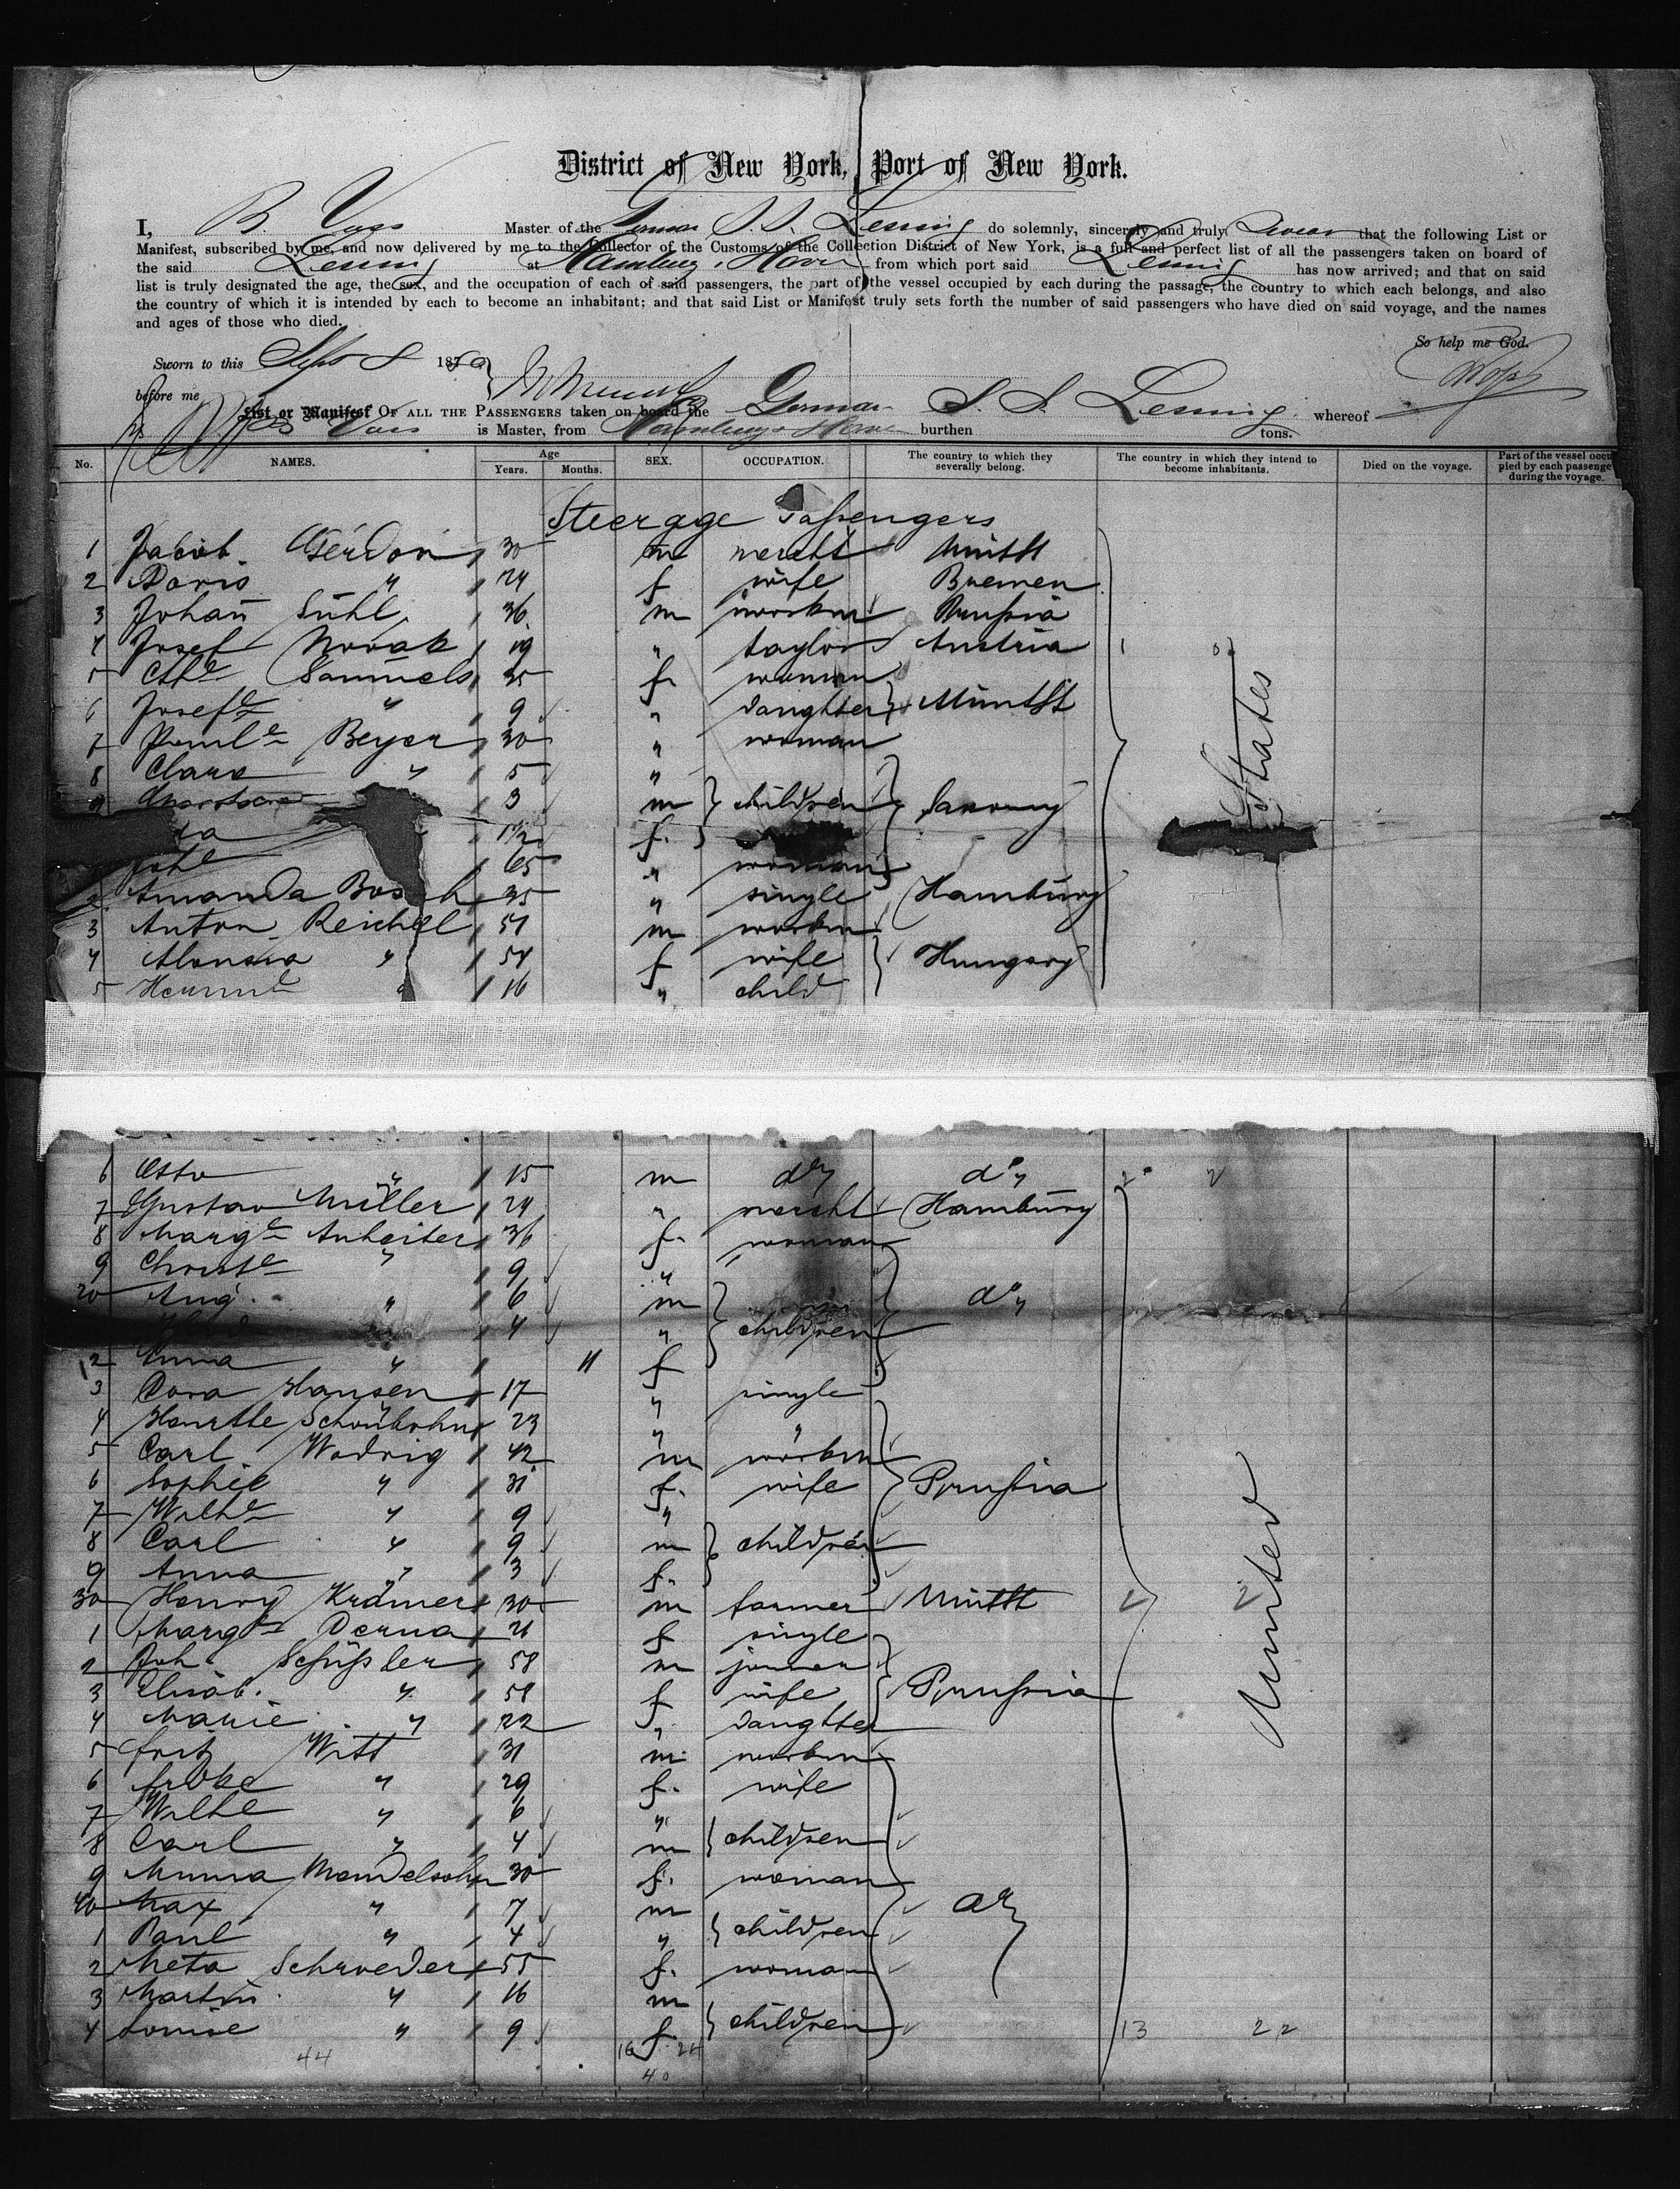 District of New York, Port of New York.
I, B. Voss Master of the German S.S. Lessing do solemnly, sincerely and truly swear that the following List or
Manifest, subscribed by me, and now delivered by me to the Collector of the Customs of the Collection District of New York, is a full and perfect list of all the passengers taken on board of
the said Lessing at Hamburg & Havre from which port said Lessing has now arrived; and that on said
list is truly designated the age, the sex, and the occupation of each of said passengers, the part of the vessel occupied by each during the passage, the country to which each belongs, and also
the country of which it is intended by each to become an inhabitant; and that said List or Manifest truly sets forth the number of said passengers who have died on said voyage, and the names
and ages of those who died.
So help me God.
Sworn to this Sept 8 1880
before me
List or Manifest OF ALL THE PASSENGERS taken on board the German S. S. Lessing whereof
Voss is Master, from Hamburg & Havre burthen tons.
No. NAMES. Age Years. Months. SEX. OCCUPATION. The country to which they severally belong. The country in which they intend to become inhabitants. Died on the voyage. Part of the vessel occu pied by each passenge during the voyage.
Steerage Passengers
1 Jacob Gerdon 30 m mercht UnitSt
2 Doris " 24 f wife Bremen
3 Johan̄ Sühl 36 m workm Prussia
4 Josef Novak 19 " taylor Austria
5 Cthe Samuels 25 f. woman
6 Josefe " 9 " daughter UnitSt
7 Paule Beyer 30 " woman
8 Clara " 5 "
9 3 m children Saxony
1 1/2 f.
65 " woman
2 Amanda Bosch 35 " single Hamburg
3 Anton Reichel 51 m workm
4 " 54 f wife Hungary
5 " 16 " child
6 Otto " 15 m do do
7 Gustav Müller 24 " mercht Hamburg
8 Marge Anheiter 36 f. woman
9 Christe " 9 "
20 Aug. " 6 m do
4 " children
2 Anna " 11 f
3 Dora Hansen 17 " single
4 23 " "
5 Carl Wodrig 42 m workm
6 Sophie " 31 f. wife Prussia
7 Wilhe " 9 "
8 Carl " 9 m children
9 Anna " 3 f.
30 Henry Krämer 30 m farmer UnitSt
1 Marge Derna 21 f single
2 Joh. Schüssler 58 m joiner
3 Elisab. " 58 f wife Prussia
4 Marie " 22 " daughter
5 Fritz Witt 31 m workm
6 " 29 f. wife
7 Wilhe " 6 "
8 Carl " 4 m children
9 Minna Mendelsohn 30 f. woman
40 Max " 7 m do
1 Paul " 4 " children
2 Meta Schroeder 55 f. woman
3 Martin " 16 m
4 Louise " 9 f. children
United States
13 22
44 16 24
40